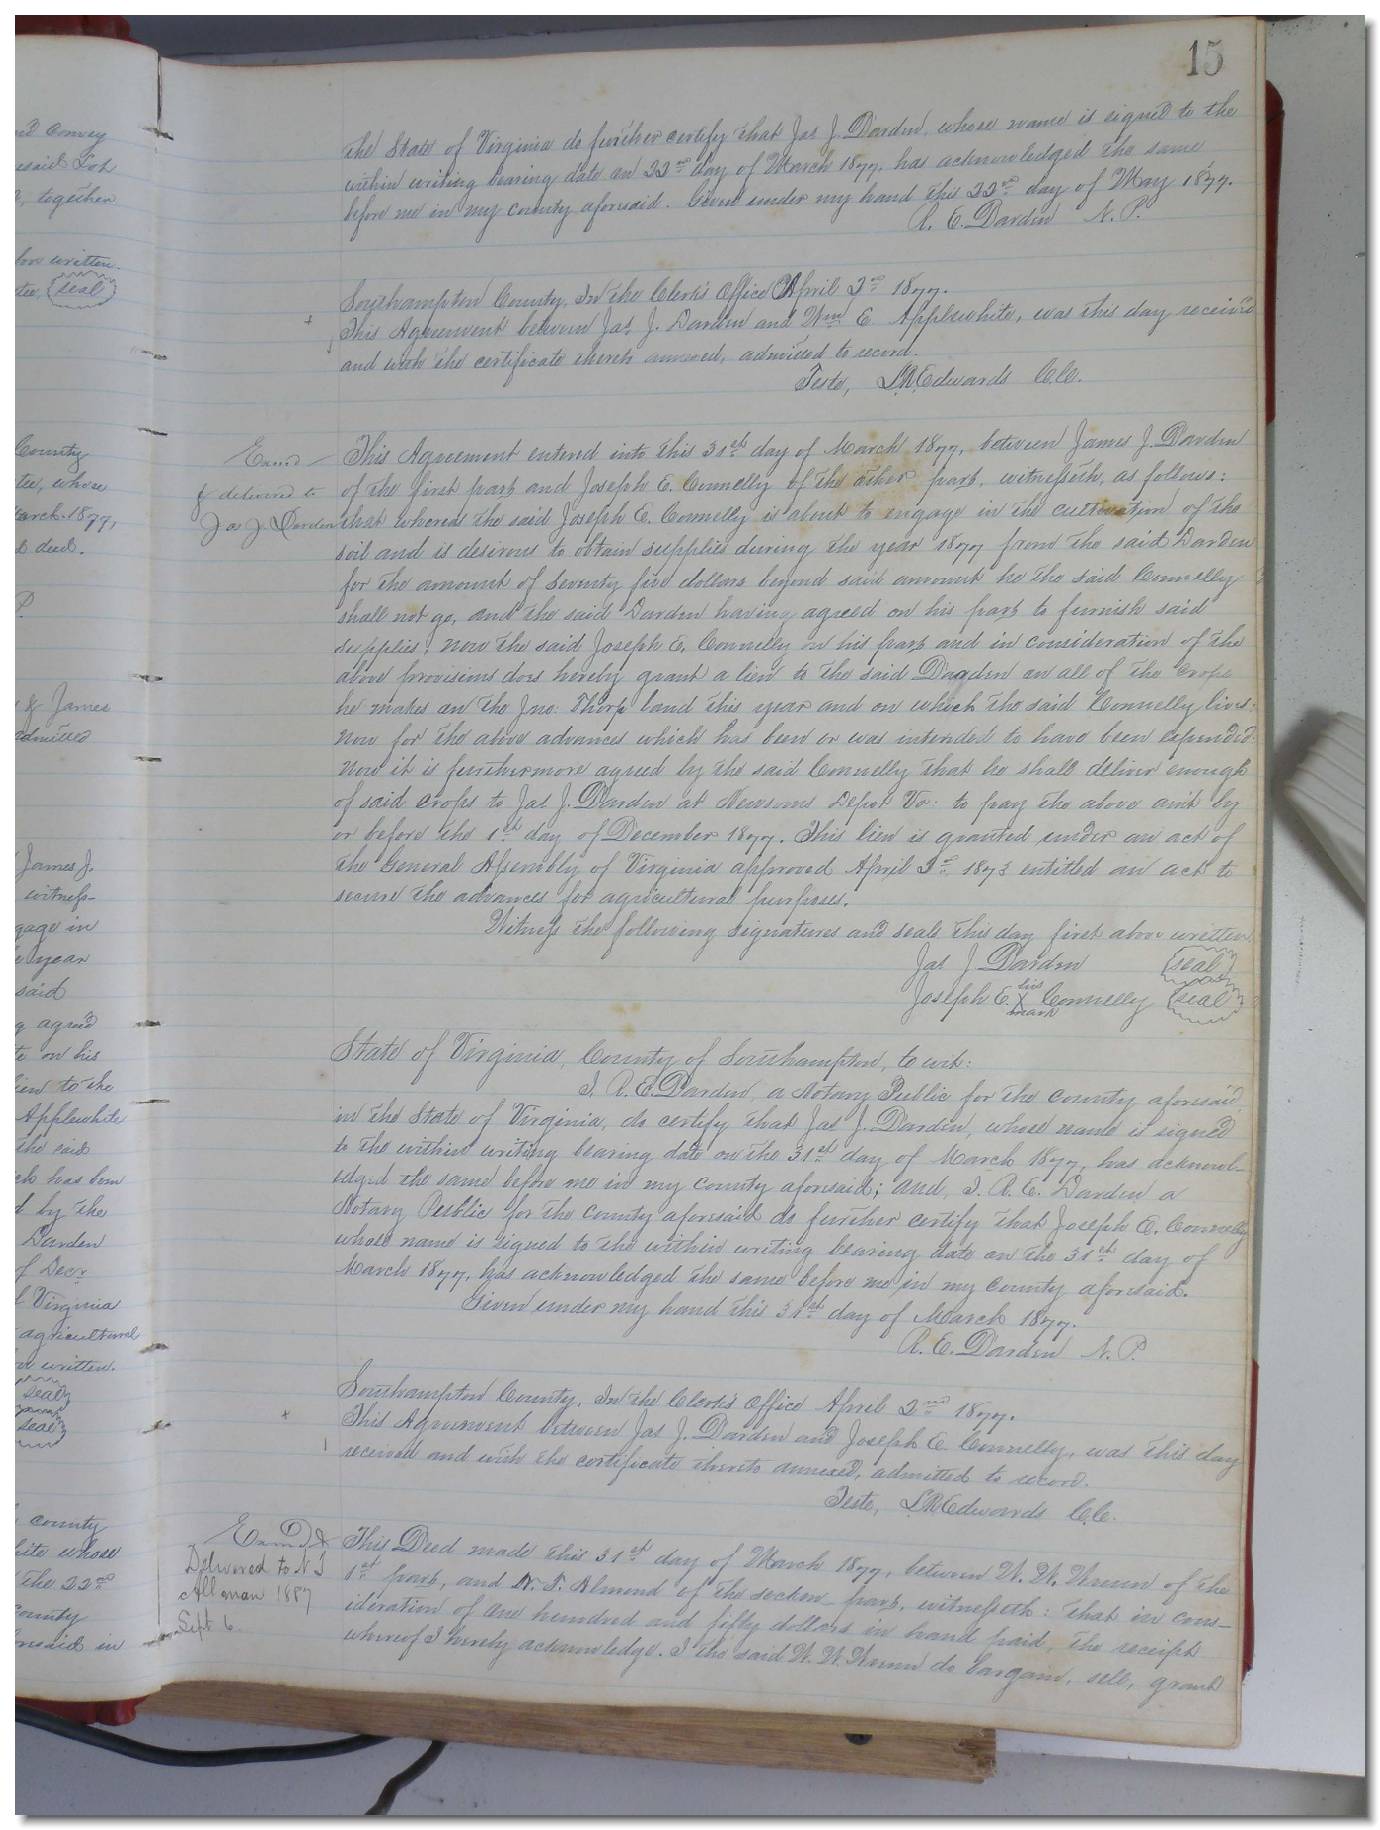 15
nd Convey
esaid Lot
, together
bove written.
tee, (seal)
County
tee, whose
March 1877,
d deed.
P.
& James
admitted
James J.
witness-
gage in
e year
said
g agreed
te on his
lien to the
Applewhite
the said
ch has been
d by the
Darden
of Decr
l Virginia
agricultural
ve written.
seal
seal
county
hite whose
the 22nd
County
oresaid in
the State of Virginia do further certify that Jas J. Darden, whose name is signed to the
within writing bearing date on 22nd day of March 1877, has acknowledged the same
before me in my County aforesaid. Given under my hand this 22nd day of May 1877.
R. E. Darden N. P.
Southampton County, In the Clerk's Office April 2nd 1877.
This Agreement between Jas J. Darden and Wm E. Applewhite, was this day received
and with the certificate thereto annexed, admitted to record.
Teste, L.R. Edwards C.C.
Exmd
& delivered to
Jas J. Darden
This Agreement entered into this 31st day of March 1877, between James J. Darden
of the first part and Joseph E. Connelly of the other part, witnesseth, as follows:
that whereas the said Joseph E. Connelly is about to engage in the cultivation of the
soil and is desirous to obtain supplies during the year 1877 from the said Darden
for the amount of Seventy five dollars beyond said amount he the said Connelly
shall not go, and the said Darden having agreed on his part to furnish said
supplies; now the said Joseph E. Connelly on his part and in consideration of the
above provisions does hereby grant a lien to the said Darden on all of the crops
he makes on the Jno. Thorp land this year and on which the said Connelly lives:
now for the above advances which has been or was intended to have been expended.
Now it is furthermore agreed by the said Connelly that he shall deliver enough
of said crops to Jas J. Darden at Newsoms Depot Va. to pay the above am't by
or before the 1st day of December 1877. This lien is granted under an act of
the General Assembly of Virginia approved April 2nd 1873 entitled an act to
secure the advances for agricultural purposes.
Witness the following signatures and seals this day first above written
Jas J Darden (seal)
Joseph E. his X mark Connelly (seal)
State of Virginia, County of Southampton, to wit:
I. R. E. Darden, a Notary Public for the county aforesaid,
in the State of Virginia, do certify that Jas J. Darden, whose name is signed
to the within writing bearing date on the 31st day of March 1877, has acknowl-
edged the same before me in my county aforesaid; and, I. R. E. Darden a
Notary Public for the county aforesaid do further certify that Joseph E. Connelly
whose name is signed to the within writing bearing date on the 31st day of
March 1877, has acknowledged the same before me in my county aforesaid.
Given under my hand this 31st day of March 1877.
R. E. Darden N. P.
Southampton County, In the Clerk's Office April 2nd 1877.
This Agreement between Jas J. Darden and Joseph E. Connelly, was this day
received and with the certificate thereto annexed, admitted to record.
Teste, L.R. Edwards C.C.
Exmd &
Delivered to N T
1887
Sept 6.
This Deed made this 31st day of March 1877, between W. W. of the
1st part, and N. T. Almond of the secon part, witnesseth: that in cons-
ideration of one hundred and fifty dollars in hand paid, the receipt
whereof I hereby acknowledge. I the said W. W. do bargain, sell, grant